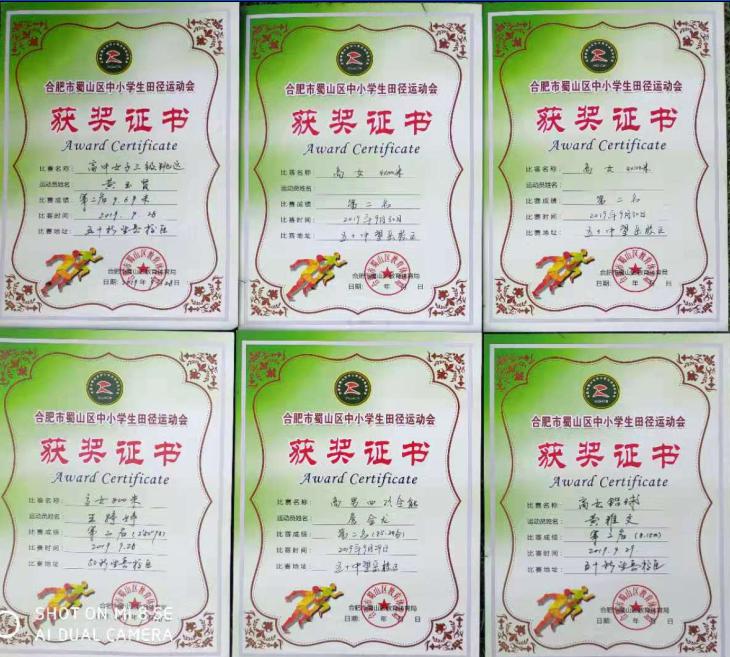 合肥市蜀山区中小学生田径运动会
获奖证书
Award Certificate
比赛名称: 高中女子三级跳远
运动员姓名: 黄玉贤
比赛成绩: 第二名 9.69米
比赛时间: 2019.9.28
比赛地址:
合肥市蜀山区教育体育局
日期: 2019年9月28日
合肥市蜀山区中小学生田径运动会
获奖证书
Award Certificate
比赛名称: 高女 4x100米
运动员姓名:
比赛成绩: 第二名
比赛时间: 2019年9月30日
比赛地址: 五十中望岳校区
合肥市蜀山区教育体育局
日期: 年 月 日
合肥市蜀山区中小学生田径运动会
获奖证书
Award Certificate
比赛名称: 高女
运动员姓名:
比赛成绩: 第二名
比赛时间: 2019年9月30日
比赛地址: 五十中望岳校区
合肥市蜀山区教育体育局
日期: 年 月 日
合肥市蜀山区中小学生田径运动会
获奖证书
Award Certificate
比赛名称: 高女 800米
运动员姓名: 王婷婷
比赛成绩:
比赛时间: 2019.9.28
比赛地址:
合肥市蜀山区中小学生田径运动会
获奖证书
Award Certificate
比赛名称: 高男四项全能
运动员姓名:
比赛成绩: 第二名
比赛时间: 2019年9月29日
比赛地址: 五十中望岳校区
年 月 日
合肥市蜀山区中小学生田径运动会
获奖证书
Award Certificate
比赛名称: 高女铅球
运动员姓名: 黄雅文
比赛成绩:
比赛时间: 2019.9.29
比赛地址:
年 月 日
SHOT ON MI 8 SE
AI DUAL CAMERA